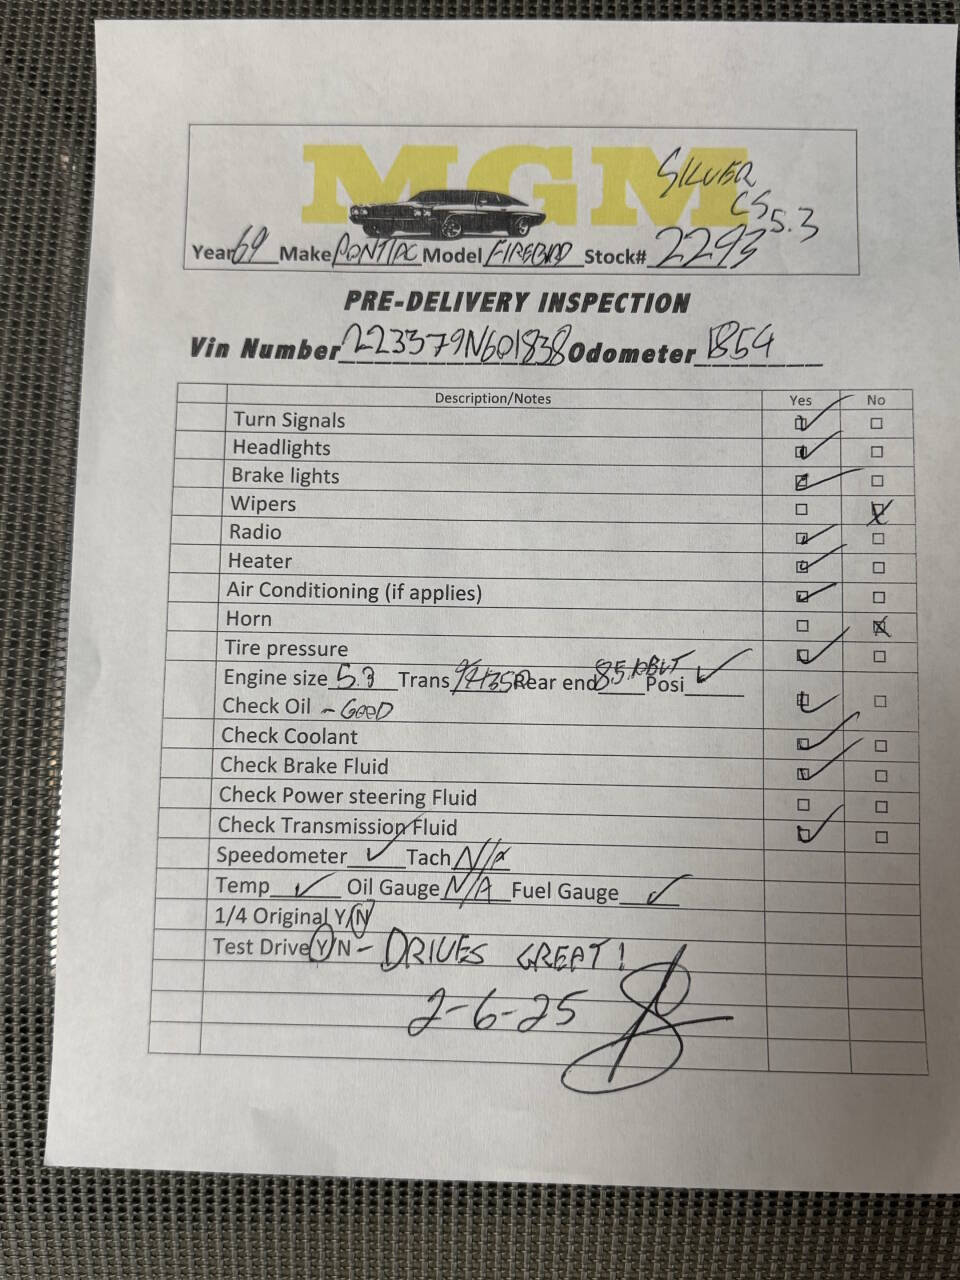 MGM
SILVER
CS 5.3
Year 69 Make PONTIAC Model FIREBIRD Stock# 2293
PRE-DELIVERY INSPECTION
Vin Number 223379N601838 Odometer 1854
Description/Notes Yes No
Turn Signals
Headlights
Brake lights
Wipers
Radio
Heater
Air Conditioning (if applies)
Horn
Tire pressure
Engine size 5.3 Trans Rear end 8.5 10 BLT Posi ✓
Check Oil - GOOD
Check Coolant
Check Brake Fluid
Check Power steering Fluid
Check Transmission Fluid
Speedometer ✓ Tach N/A
Temp ✓ Oil Gauge N/A Fuel Gauge ✓
1/4 Original Y/N
Test Drive Y/N - DRIVES GREAT!
2-6-25